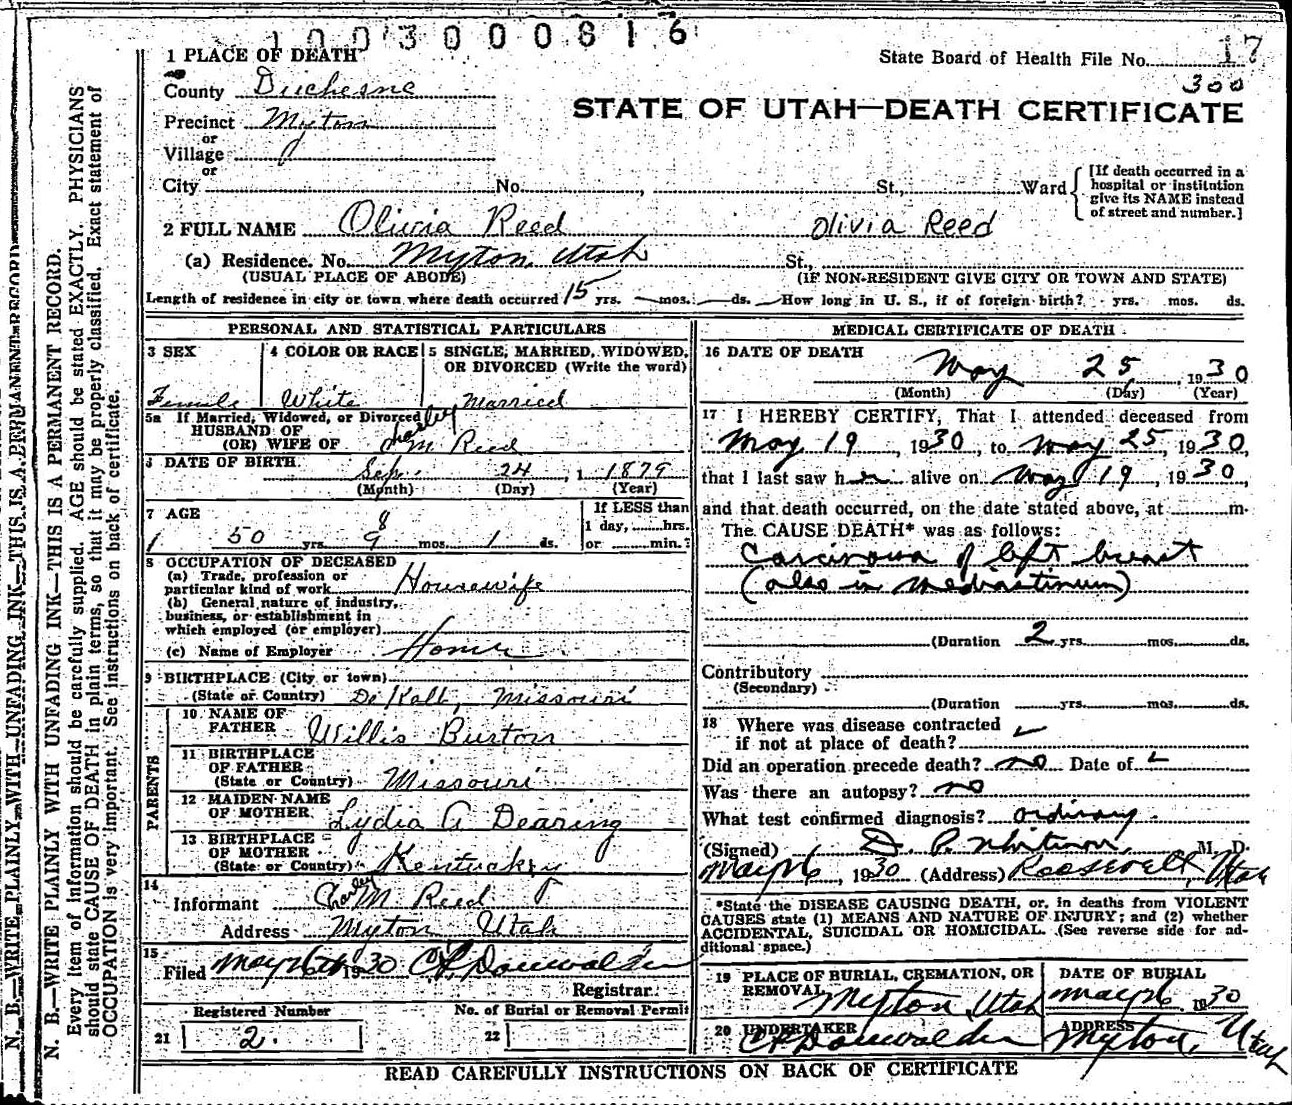 1003000816
1 PLACE OF DEATH
State Board of Health File No. 17
300
County Duchesne
STATE OF UTAH—DEATH CERTIFICATE
Precinct Myton
or
Village
or
City No. , St., Ward
[If death occurred in a hospital or institution give its NAME instead of street and number.]
2 FULL NAME Olivia Reed Olivia Reed
(a) Residence. No. Myton, Utah St.,
(USUAL PLACE OF ABODE) (IF NON-RESIDENT GIVE CITY OR TOWN AND STATE)
Length of residence in city or town where death occurred 15 yrs. — mos. — ds. — How long in U. S., if of foreign birth? yrs. mos. ds.
PERSONAL AND STATISTICAL PARTICULARS
3 SEX
Female
4 COLOR OR RACE
White
5 SINGLE, MARRIED, WIDOWED, OR DIVORCED (Write the word)
Married
5a If Married, Widowed, or Divorced
HUSBAND OF
(OR) WIFE OF Charley M Reed
6 DATE OF BIRTH
Sep. 24, 1 1879
(Month) (Day) (Year)
7 AGE
8
50 yrs. 9 mos. 1 ds.
If LESS than
1 day, hrs.
or min.?
8 OCCUPATION OF DECEASED
(a) Trade, profession or
particular kind of work Housewife
(b) General nature of industry,
business, or establishment in
which employed (or employer)
(c) Name of Employer Home
9 BIRTHPLACE (City or town)
(State or Country) De Kalb, Missouri
PARENTS
10 NAME OF
FATHER Willis Burton
11 BIRTHPLACE
OF FATHER
(State or Country) Missouri
12 MAIDEN NAME
OF MOTHER Lydia A Dearing
13 BIRTHPLACE
OF MOTHER
(State or Country) Kentucky
14
Informant Charley M Reed
Address Myton Utah
15
Filed May 26th 1930 Registrar
Registered Number
21 2.
No. of Burial or Removal Permit
22
MEDICAL CERTIFICATE OF DEATH
16 DATE OF DEATH
May 25, 1930
(Month) (Day) (Year)
17 I HEREBY CERTIFY, That I attended deceased from
May 19, 1930, to May 25, 1930,
that I last saw her alive on May 19, 1930,
and that death occurred, on the date stated above, at m.
The CAUSE DEATH* was as follows:
Carcinoma of left breast
(also in mediastinum)
(Duration 2 yrs. mos. ds.
Contributory
(Secondary)
(Duration yrs. mos. ds.
18 Where was disease contracted
if not at place of death?
Did an operation precede death? no Date of
Was there an autopsy? no
What test confirmed diagnosis? ordinary.
(Signed) D. P. Whitmore, M. D.
May 26, 1930 (Address) Roosevelt, Utah
*State the DISEASE CAUSING DEATH, or, in deaths from VIOLENT
CAUSES state (1) MEANS AND NATURE OF INJURY; and (2) whether
ACCIDENTAL, SUICIDAL OR HOMICIDAL. (See reverse side for ad-
ditional space.)
19 PLACE OF BURIAL, CREMATION, OR
REMOVAL Myton, Utah
DATE OF BURIAL
May 26 1930
20 UNDERTAKER
ADDRESS
Myton, Utah
READ CAREFULLY INSTRUCTIONS ON BACK OF CERTIFICATE
N. B.—WRITE PLAINLY WITH UNFADING INK—THIS IS A PERMANENT RECORD
N. B.—WRITE PLAINLY WITH UNFADING INK—THIS IS A PERMANENT RECORD.
Every item of information should be carefully supplied. AGE should be stated EXACTLY. PHYSICIANS
should state CAUSE OF DEATH in plain terms, so that it may be properly classified. Exact statement of
OCCUPATION is very important. See instructions on back of certificate.